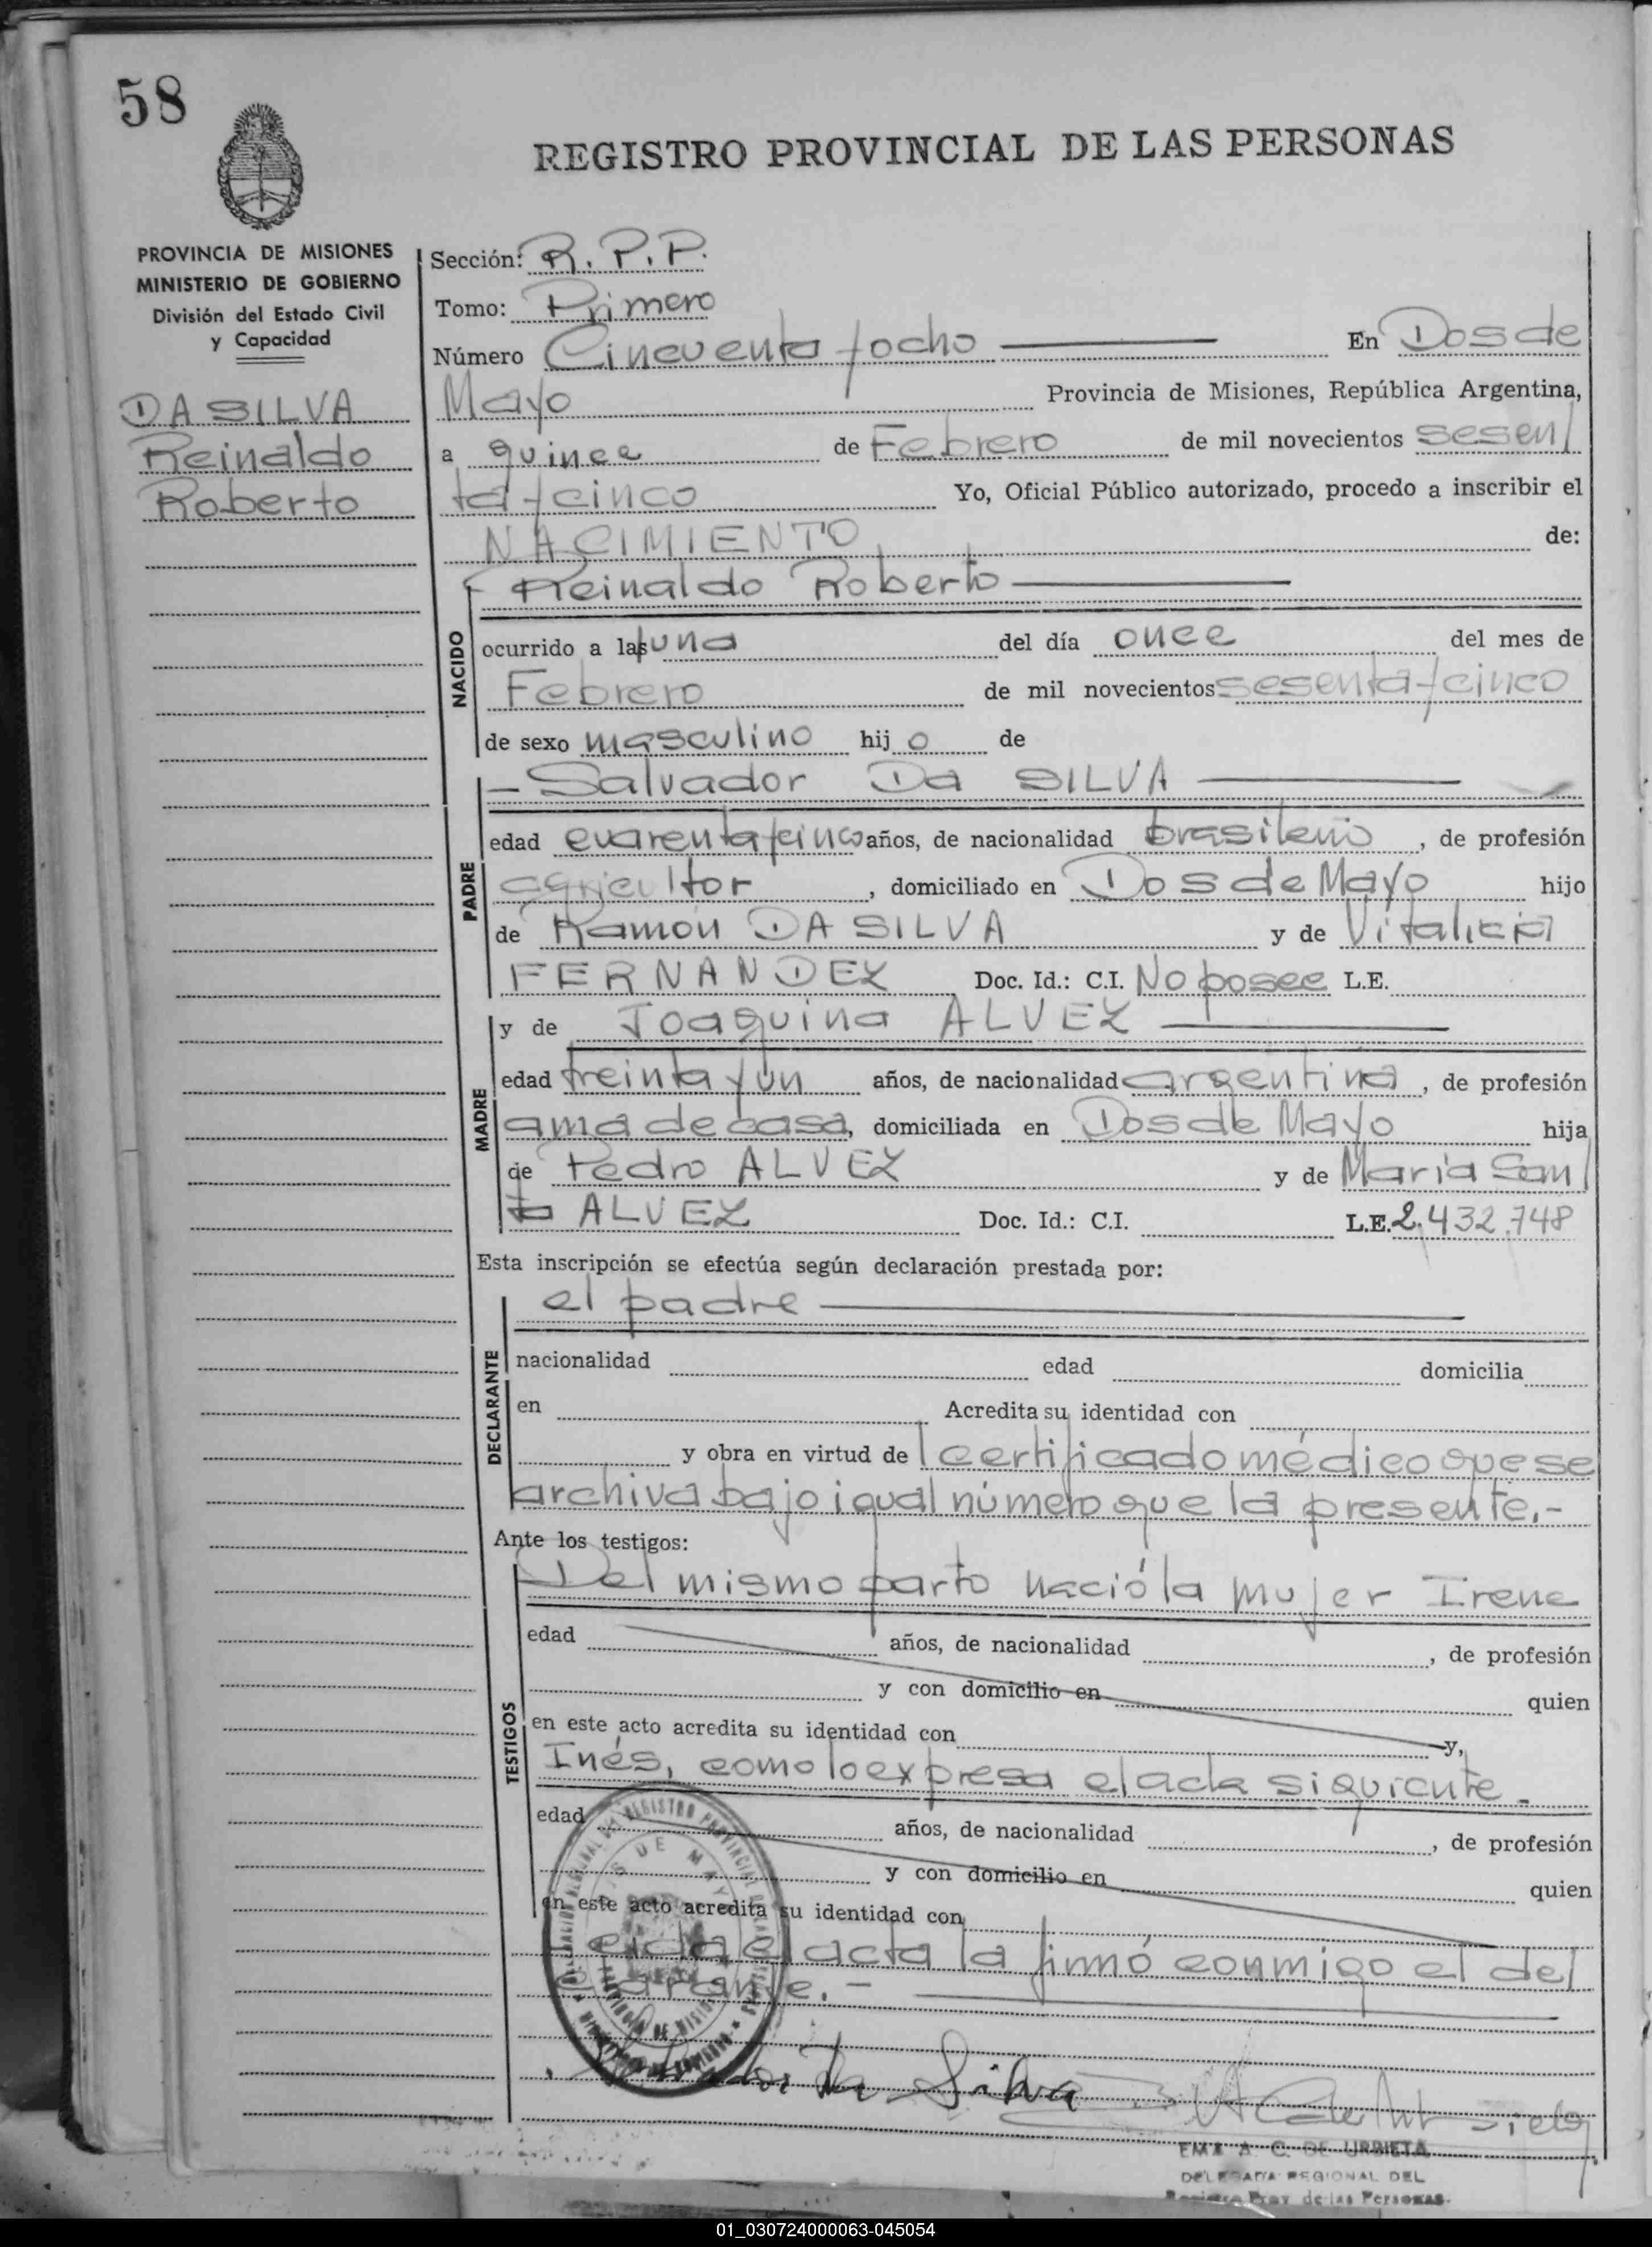 58
REGISTRO PROVINCIAL DE LAS PERSONAS
PROVINCIA DE MISIONES
MINISTERIO DE GOBIERNO
División del Estado Civil
y Capacidad
DA SILVA
Reinaldo
Roberto
Sección: R.P.P.
Tomo: Primero
Número Cincuenta y ocho En Dos de
Mayo Provincia de Misiones, República Argentina,
a quince de Febrero de mil novecientos sesen/
ta y cinco Yo, Oficial Público autorizado, procedo a inscribir el
NACIMIENTO de:
NACIDO
Reinaldo Roberto
ocurrido a las una del día once del mes de
Febrero de mil novecientos sesenta y cinco
de sexo masculino hijo de
PADRE
- Salvador Da SILVA
edad cuarenta y cinco años, de nacionalidad brasileño, de profesión
agricultor, domiciliado en Dos de Mayo hijo
de Ramón DA SILVA y de Vitalicia
FERNANDEZ Doc. Id.: C.I. No posee L.E.
MADRE
y de Joaquina ALVEZ
edad treinta y un años, de nacionalidad argentina, de profesión
ama de casa, domiciliada en Dos de Mayo hija
de Pedro ALVEZ y de María San/
ta ALVEZ Doc. Id.: C.I. L.E. 2.432.748
Esta inscripción se efectúa según declaración prestada por:
DECLARANTE
el padre
nacionalidad edad domicilia
en Acredita su identidad con
y obra en virtud de certificado médico que se
archiva bajo igual número que la presente.-
Ante los testigos:
TESTIGOS
Del mismo parto nació la mujer Irene
edad años, de nacionalidad , de profesión
y con domicilio en quien
en este acto acredita su identidad con y,
Inés, como lo expresa el acta siguiente.
edad años, de nacionalidad , de profesión
y con domicilio en quien
en este acto acredita su identidad con
Leida el acta la firmó conmigo el de/
clarante.-
Salvador Da Silva
EMA A. C. DE URBIETA
DELEGADA REGIONAL DEL
Registro Prov. de las Personas
01_030724000063-045054